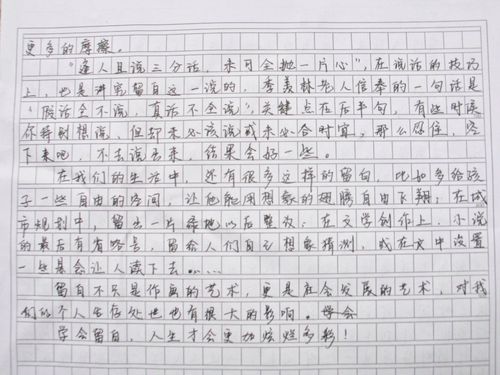 更多的摩擦。
“逢人且说三分话，未可全抛一片心”，在说话的技巧
上，也是讲究留白这一说的，季羡林先人信奉的一句话是
“假话全不说，真话不全说”，关键点在后半句，有些时候
你特别想说，但却未必该说或未必合时宜，那么忍住，忍
下来吧，不去说出来，结果会好一些。
在我们的生活中，还有很多这样的留白，比如多给孩
子一些自由的空间，让他能用想象的翅膀自由飞翔；在城
市规划中，留出一片绿地以后整改；在文学创作上，小说
的最后有省略号，留给人们自己想象猜测，或在文中设置
一些悬念让人读下去……
留白不只是作画的艺术，更是社会发展的艺术，对我
们的个人生存处世也有很大的影响。学会
学会留白，人生才会更加炫烂多彩！